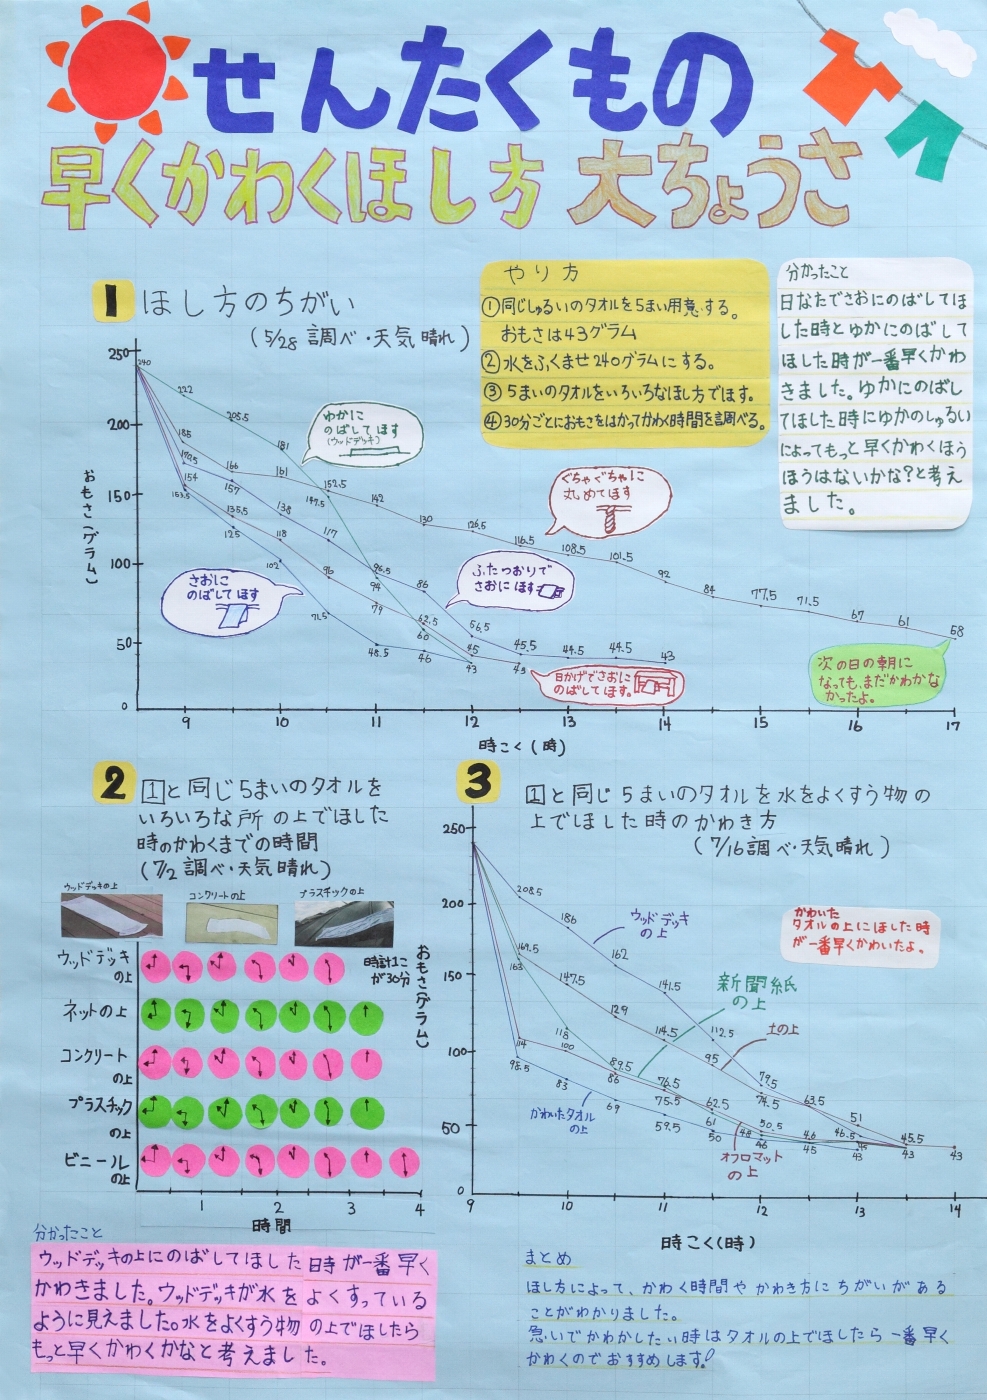 せんたくもの
早くかわくほし方 大ちょうさ
1 ほし方のちがい
(5/28 調べ・天気晴れ)
やり方
①同じしゅるいのタオルを5まい用意する。
おもさは43グラム
②水をふくませ240グラムにする。
③5まいのタオルをいろいろなほし方でほす。
④30分ごとにおもさをはかってかわく時間を調べる。
分かったこと
日なたでさおにのばしてほ
した時とゆかにのばして
ほした時が一番早くかわ
きました。ゆかにのばし
てほした時にゆかのしゅるい
によってもっと早くかわくほう
ほうはないかな?と考え
ました。
おもさ(グラム)
250
200
150
100
50
0
240
222
205.5
181
147.5
185
166
161
152.5
142
130
126.5
116.5
108.5
101.5
92
84
77.5
71.5
67
61
58
170.5
157
138
117
96.5
86
56.5
45.5
44.5
44.5
43
154
135.5
118
96
79
62.5
45
43
153.5
125
102
71.5
48.5
46
43
94
60
ゆかに
のばしてほす
(ウッドデッキ)
ぐちゃぐちゃに
丸めてほす
ふたつおりで
さおにほす
さおに
のばしてほす
日かげでさおに
のばしてほす。
次の日の朝に
なっても、まだかわかな
かったよ。
9 10 11 12 13 14 15 16 17
時こく(時)
2 1と同じ5まいのタオルを
いろいろな所の上でほした
時のかわくまでの時間
(7/2 調べ・天気晴れ)
ウッドデッキの上
コンクリートの上
プラスチックの上
時計1こ
が30分
ウッドデッキ
の上
ネットの上
コンクリート
の上
プラスチック
の上
ビニール
の上
1 2 3 4
時間
分かったこと
ウッドデッキの上にのばしてほした時が一番早く
かわきました。ウッドデッキが水をよくすっている
ように見えました。水をよくすう物の上でほしたら
もっと早くかわくかなと考えました。
3 1と同じ5まいのタオルを水をよくすう物の
上でほした時のかわき方
(7/16調べ・天気晴れ)
かわいた
タオルの上にほした時
が一番早くかわいたよ。
おもさ(グラム)
250
200
150
100
50
0
208.5
186
162
141.5
112.5
79.5
63.5
51
45.5
43
169.5
147.5
129
114.5
95
74.5
46.5
163
118
89.5
76.5
62.5
50.5
46
45
43
114
100
86
75.5
61
48
98.5
83
69
59.5
50
46
45
43
ウッドデッキ
の上
新聞紙
の上
土の上
かわいたタオル
の上
オフロマット
の上
9 10 11 12 13 14
時こく(時)
まとめ
ほし方によって、かわく時間やかわき方にちがいがある
ことがわかりました。
急いでかわかしたい時はタオルの上でほしたら一番早く
かわくのでおすすめします!